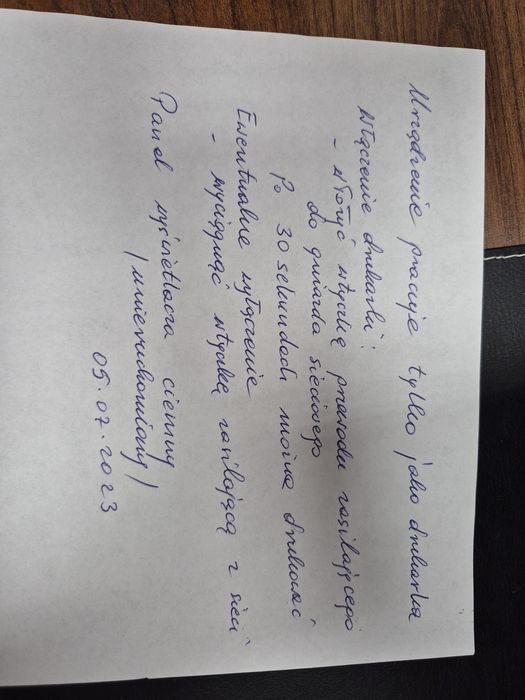 Urządzenie pracuje tylko jako drukarka
włączenie drukarki:
- włożyć wtyczkę przewodu zasilającego
do gniazda sieciowego
Po 30 sekundach można drukować
Ewentualne wyłączenie
- wyciągnąć wtyczkę zasilającą z sieci
Panel wyświetlacza ciemny
/unieruchomiony/
05.07.2023